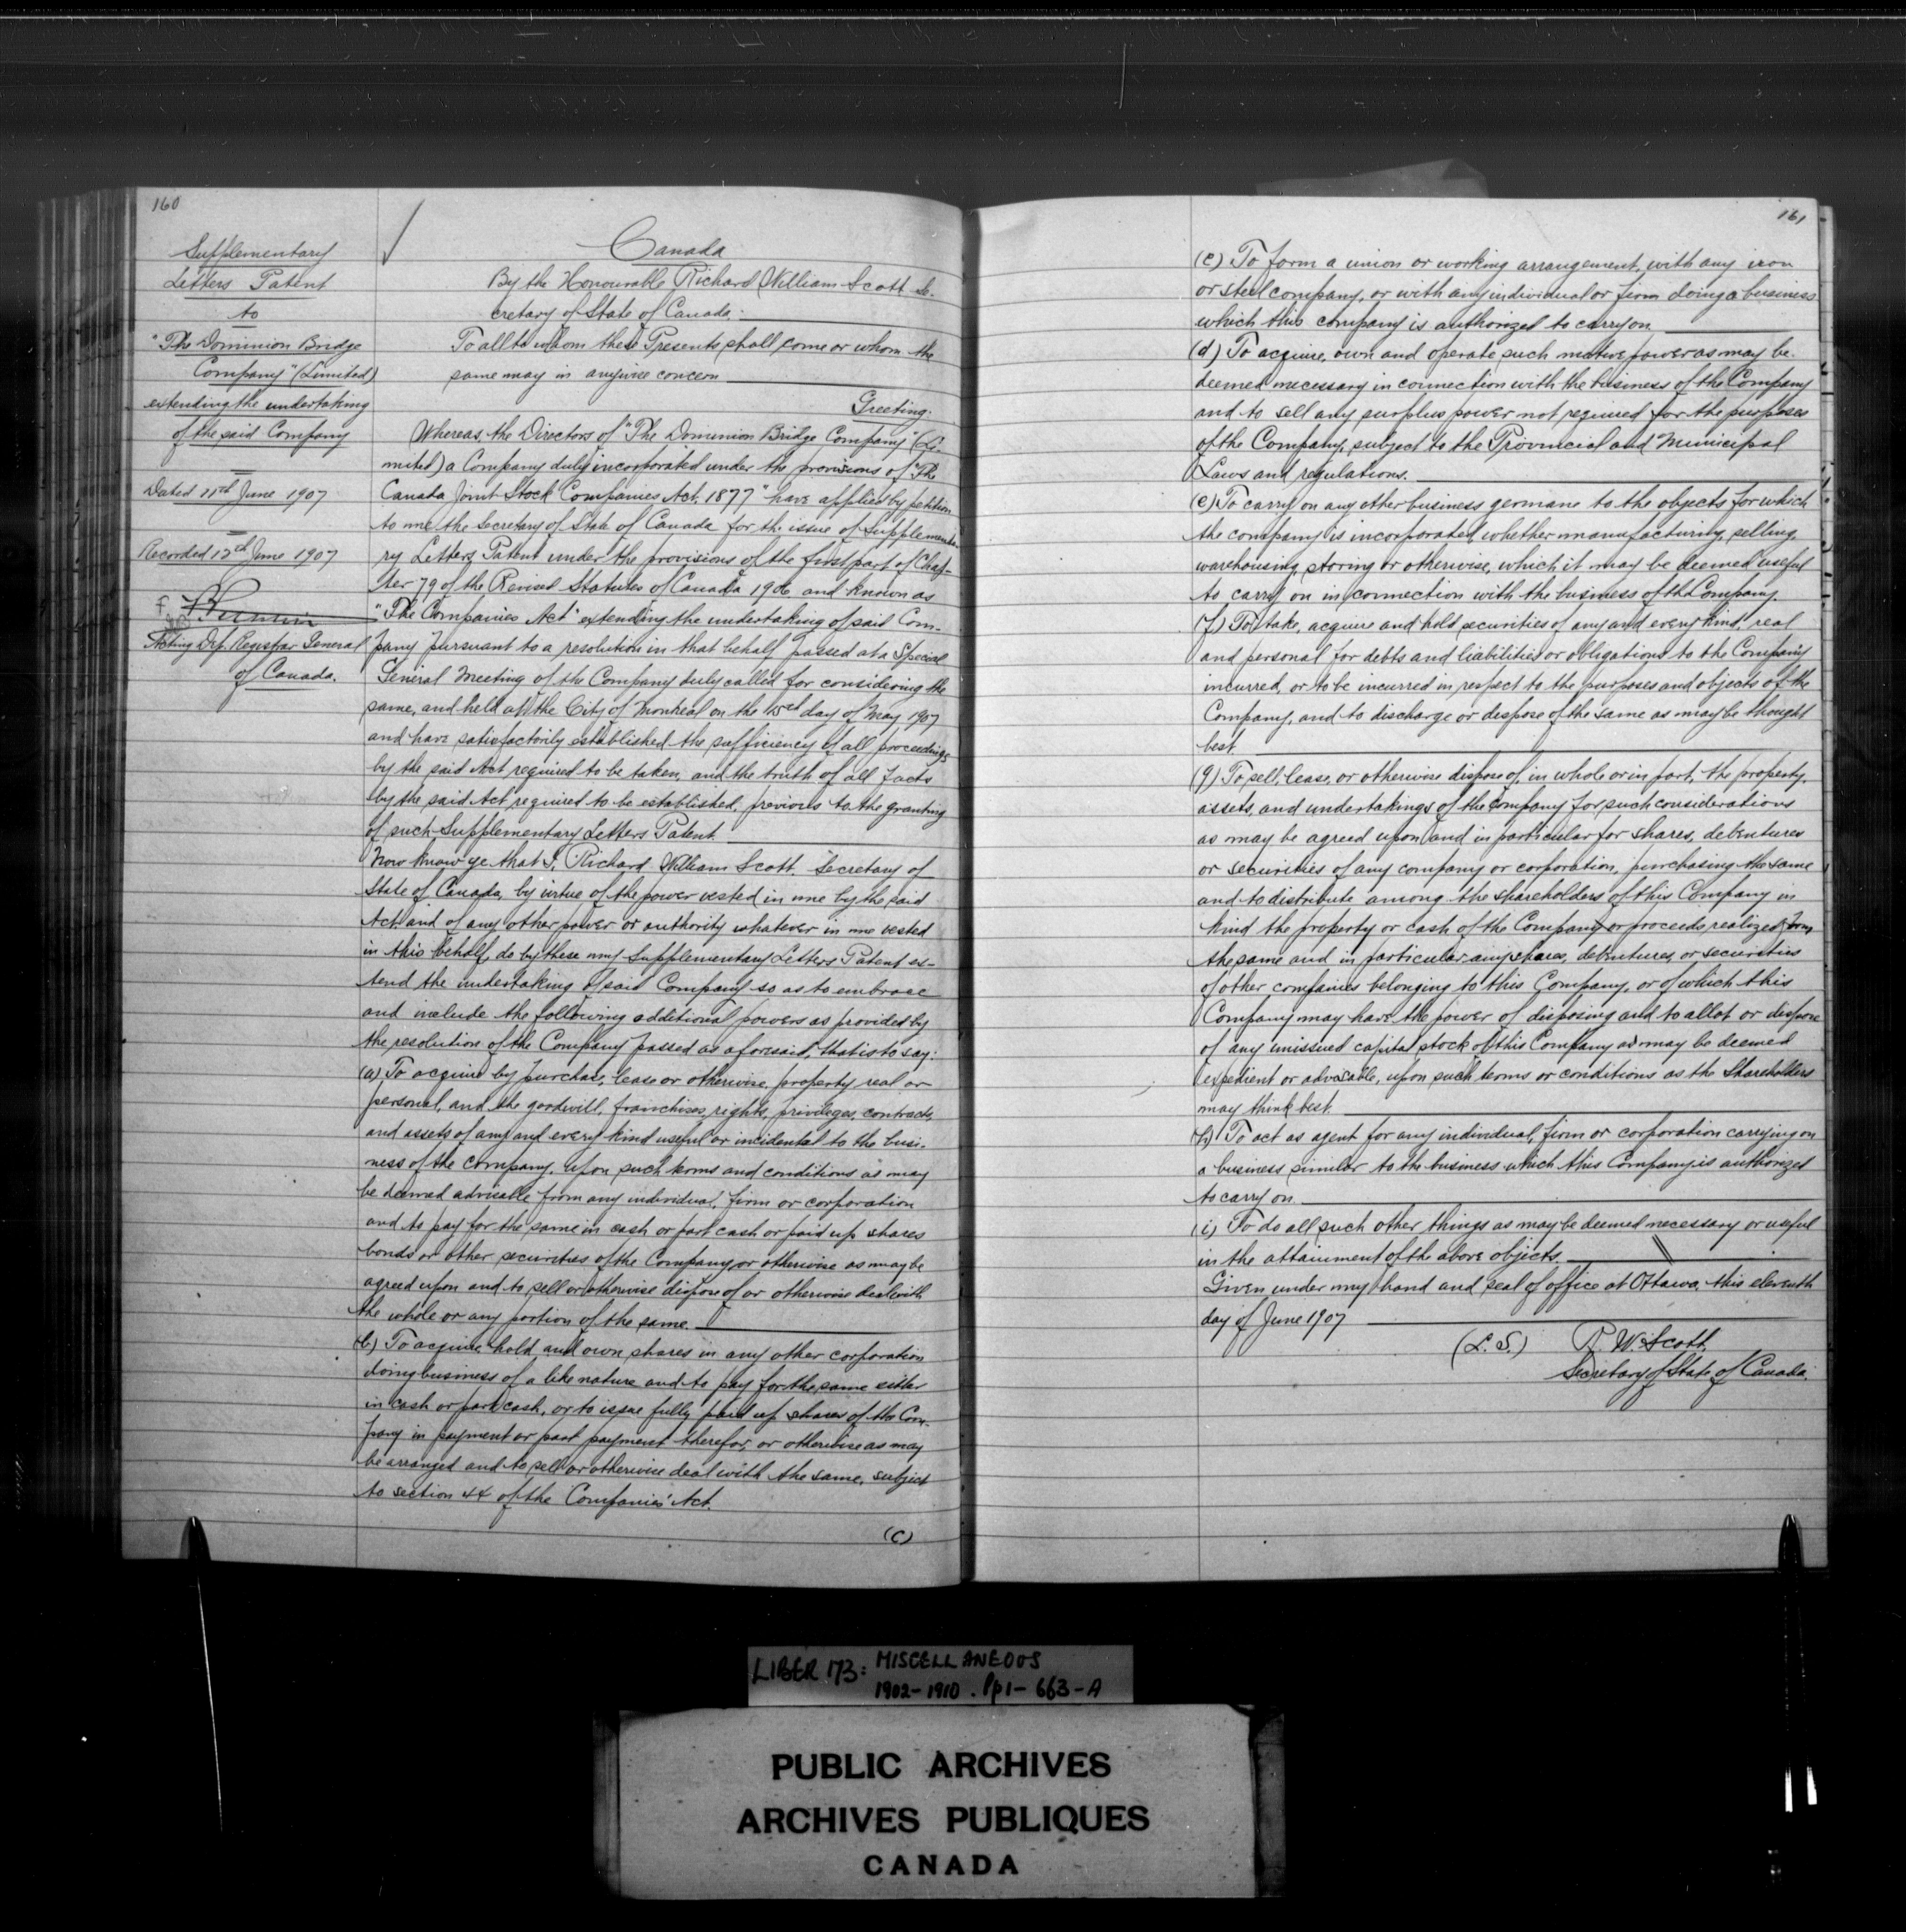 160
Supplementary
Letters Patent
to
"The Dominion Bridge
Company" (Limited)
extending the undertaking
of the said Company
Dated 11th June 1907
Recorded 12th June 1907
Acting Dep. Registrar General
of Canada.
Canada
By the Honourable Richard William Scott Se-
cretary of State of Canada:
To all to whom these Presents shall come or whom the
same may in anywise concern
Greeting:
Whereas, the Directors of "The Dominion Bridge Company" (Li-
mited) a Company duly incorporated under the provisions of "The
Canada Joint Stock Companies Act, 1877" have applied by petition
to me the Secretary of State of Canada for the issue of Supplementa-
ry Letters Patent under the provisions of the first part of Chap-
ter 79 of the Revised Statutes of Canada 1906 and known as
"The Companies Act" extending the undertaking of said Com-
pany pursuant to a resolution in that behalf passed at a Special
General Meeting of the Company duly called for considering the
same, and held at the City of Montreal on the day of May 1907
and have satisfactorily established the sufficiency of all proceedings
by the said Act required to be taken, and the truth of all facts
by the said Act required to be established, previous to the granting
of such Supplementary Letters Patent
Now know ye that I, Richard William Scott, Secretary of
State of Canada, by virtue of the power vested in me by the said
Act and of any other power or authority whatever in me vested
in this behalf, do by these my Supplementary Letters Patent ex-
tend the undertaking of said Company so as to embrace
and include the following additional powers as provided by
the resolution of the Company passed as aforesaid, that is to say:
(a) To acquire by purchase, lease or otherwise, property real or
personal, and the goodwill, franchises, rights, privileges, contracts,
and assets of any and every kind useful or incidental to the busi-
ness of the company, upon such terms and conditions as may
be deemed advisable from any individual, firm or corporation
and to pay for the same in cash or part cash or paid up shares
bonds or other securities of the Company or otherwise as may be
agreed upon and to sell or otherwise dispose of or otherwise deal with
the whole or any portion of the same.
(b) To acquire hold and own shares in any other corporation
doing business of a like nature and to pay for the same either
in cash or part cash, or to issue fully paid up shares of the Com-
pany in payment or part payment therefor, or otherwise as may
be arranged and to sell or otherwise deal with the same, subject
to section 44 of the Companies' Act.
(c)
161
(c) To form a union or working arrangement, with any iron
or steel company, or with any individual or firm doing a business
which this company is authorized to carry on
(d) To acquire, own and operate such motive power as may be
deemed necessary in connection with the business of the Company
and to sell any surplus power not required for the purposes
of the Company, subject to the Provincial and Municipal
Laws and regulations.
(e) To carry on any other business germane to the objects for which
the company is incorporated, whether manufacturing, selling,
warehousing, storing or otherwise, which it may be deemed useful
to carry on in connection with the business of the Company.
(f) To take, acquire and hold securities of any and every kind, real
and personal for debts and liabilities or obligations to the Company
incurred, or to be incurred in respect to the purposes and objects of the
Company, and to discharge or dispose of the same as may be thought
best
(g) To sell, lease, or otherwise dispose of, in whole or in part, the property,
assets, and undertakings of the Company for such considerations
as may be agreed upon and in particular for shares, debentures
or securities of any company or corporation, purchasing the same
and to distribute among the shareholders of this Company in
kind the property or cash of the Company or proceeds realized from
the same and in particular any shares, debentures, or securities
of other companies belonging to this Company, or of which this
Company may have the power of disposing and to allot or dispose
of any unissued capital stock of this Company as may be deemed
expedient or advisable, upon such terms or conditions as the Shareholders
may think best.
(h) To act as agent for any individual, firm or corporation carrying on
a business similar to the business which this Company is authorized
to carry on
(i) To do all such other things as may be deemed necessary or useful
in the attainment of the above objects.
Given under my hand and seal of office at Ottawa, this eleventh
day of June 1907
(L. S.) R. W. Scott.
Secretary of State of Canada.
LIBER 173: MISCELLANEOUS
1902-1910. Pp 1-663-A
PUBLIC ARCHIVES
ARCHIVES PUBLIQUES
CANADA